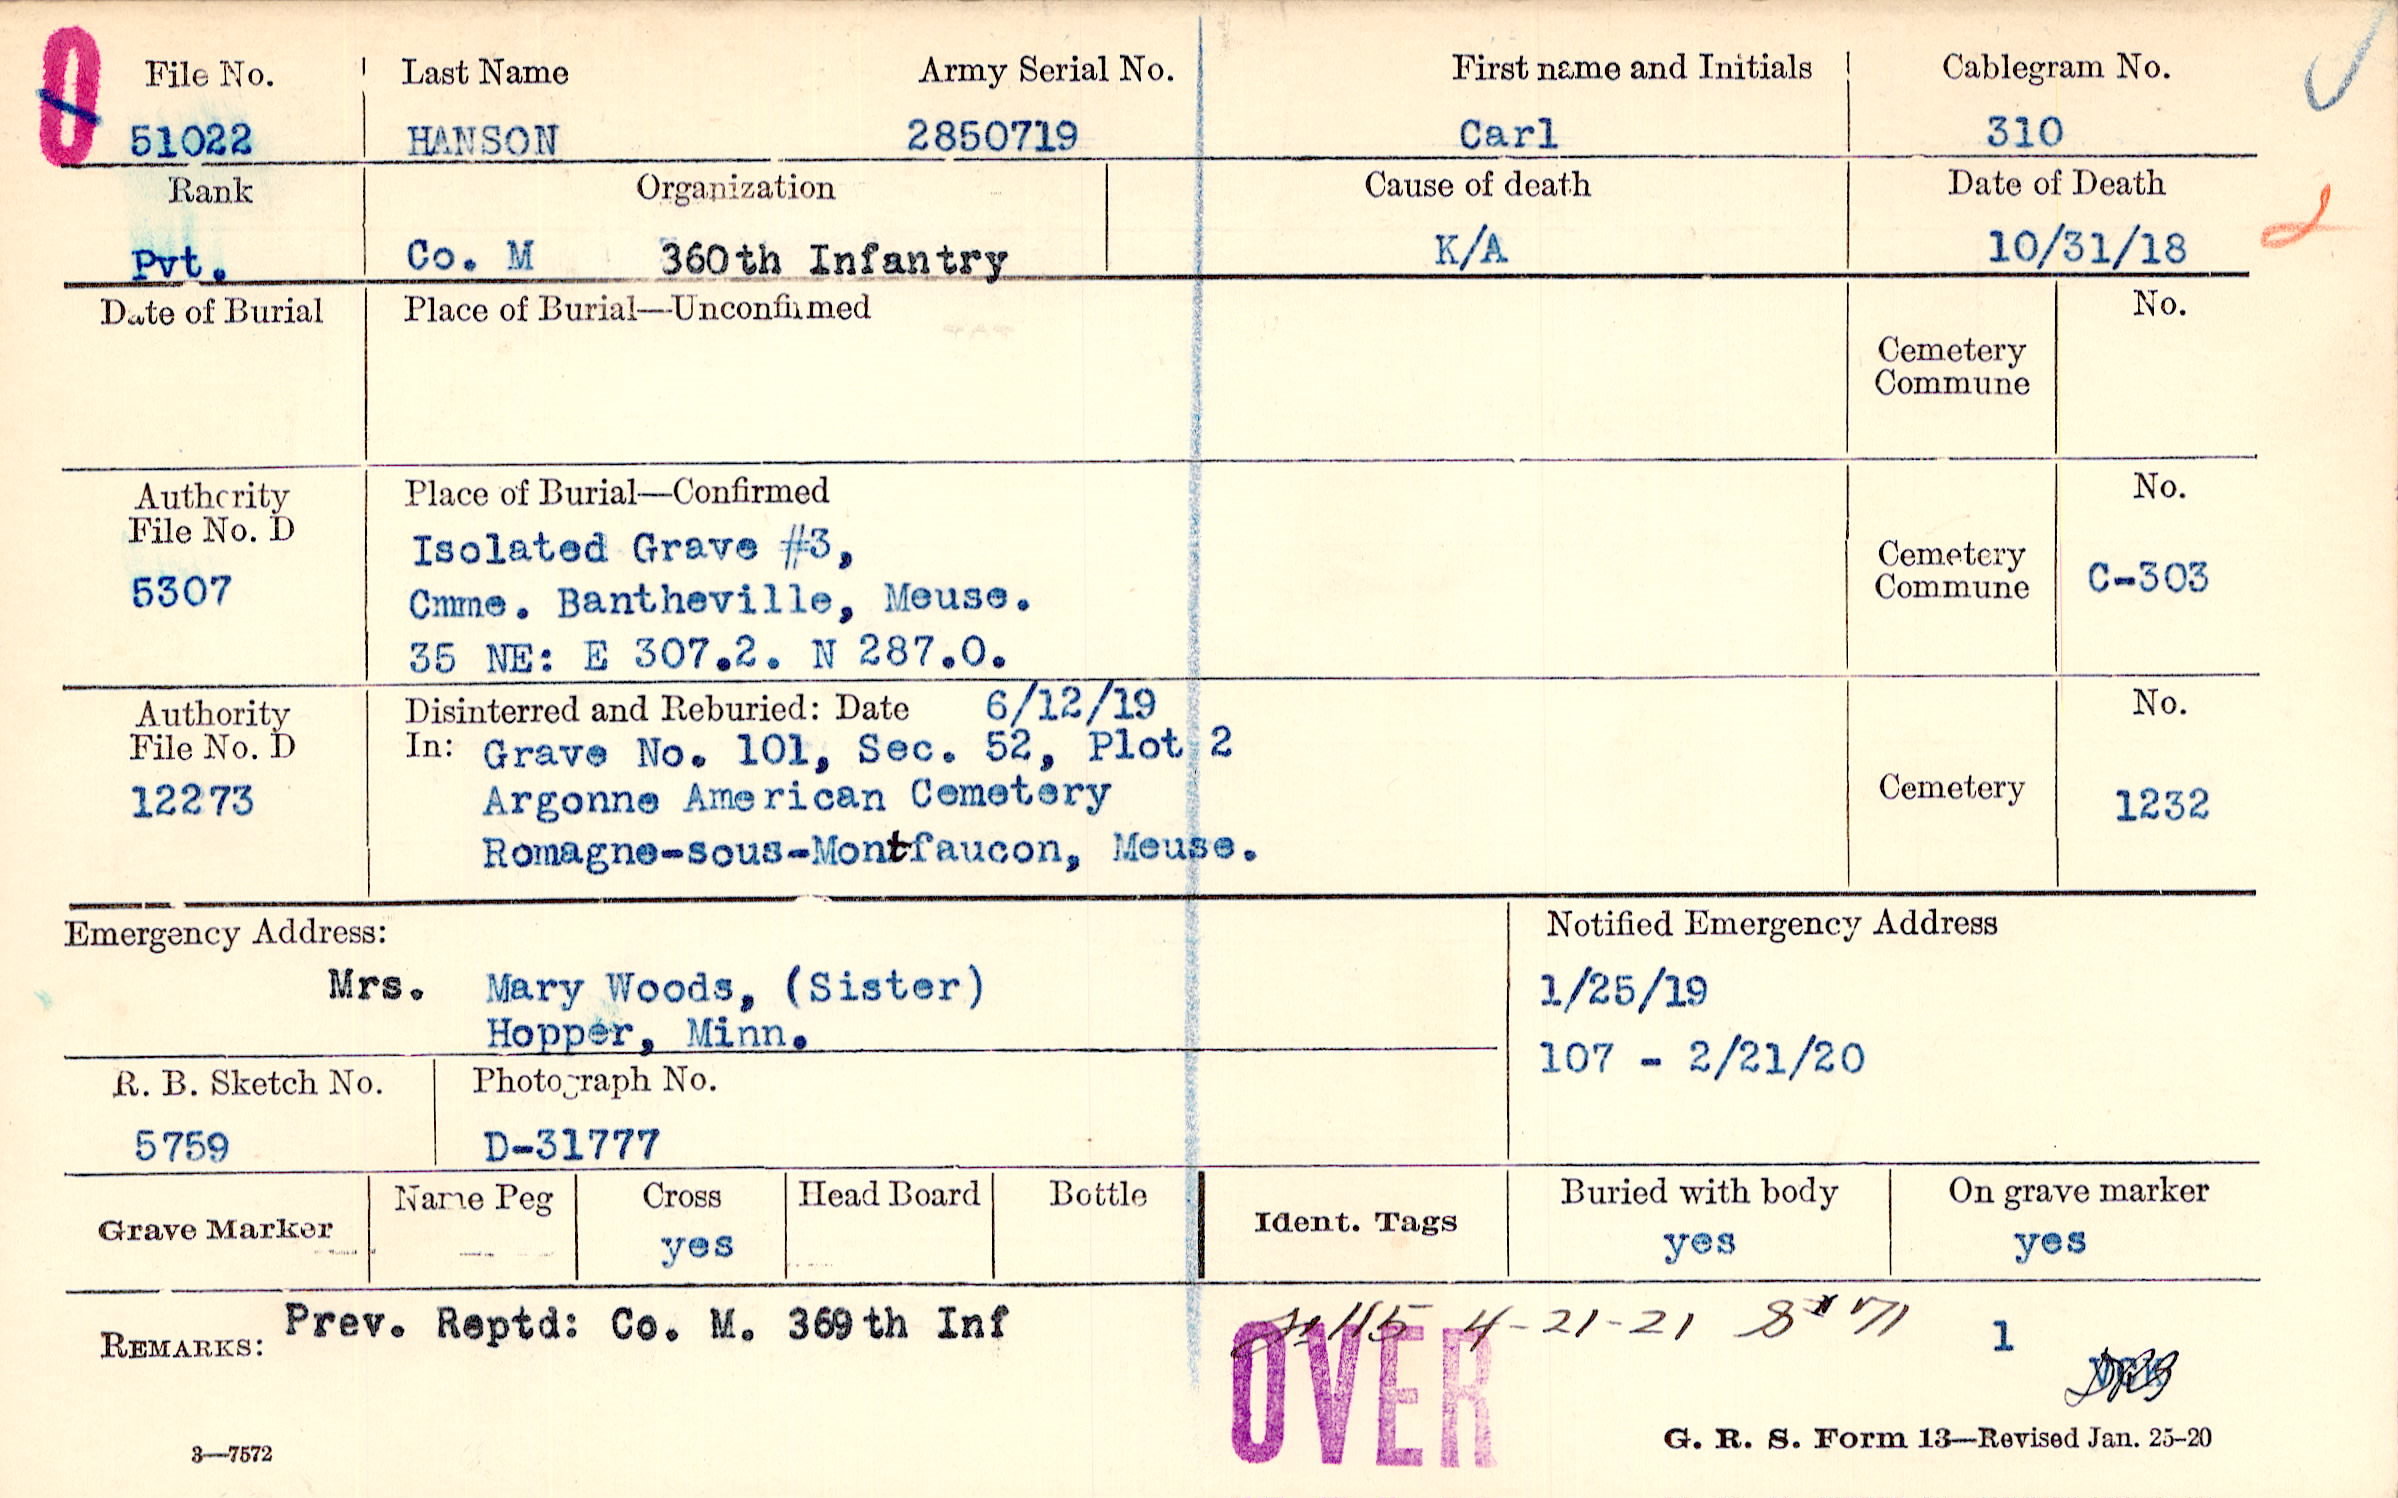 0
File No. Last Name Army Serial No. First name and Initials Cablegram No.
51022 HANSON 2850719 Carl 310
Rank Organization Cause of death Date of Death
Pvt. Co. M 360th Infantry K/A 10/31/18
2
Date of Burial Place of Burial—Unconfirmed No.
Cemetery
Commune
Authority Place of Burial—Confirmed No.
File No. D
5307
Isolated Grave #3,
Cmme. Bantheville, Meuse.
35 NE: E 307.2. N 287.0.
Cemetery
Commune C-303
Authority Disinterred and Reburied: Date 6/12/19 No.
File No. D In: Grave No. 101, Sec. 52, Plot 2
12273 Argonne American Cemetery Cemetery 1232
Romagne-sous-Montfaucon, Meuse.
Emergency Address: Notified Emergency Address
Mrs. Mary Woods, (Sister) 1/25/19
Hopper, Minn.
107 - 2/21/20
R. B. Sketch No. Photograph No.
5759 D-31777
Grave Marker Name Peg Cross Head Board Bottle Ident. Tags Buried with body On grave marker
yes yes yes
REMARKS: Prev. Reptd: Co. M. 369th Inf
115 4-21-21 71 1
OVER
3—7572
G. R. S. Form 13—Revised Jan. 25-20